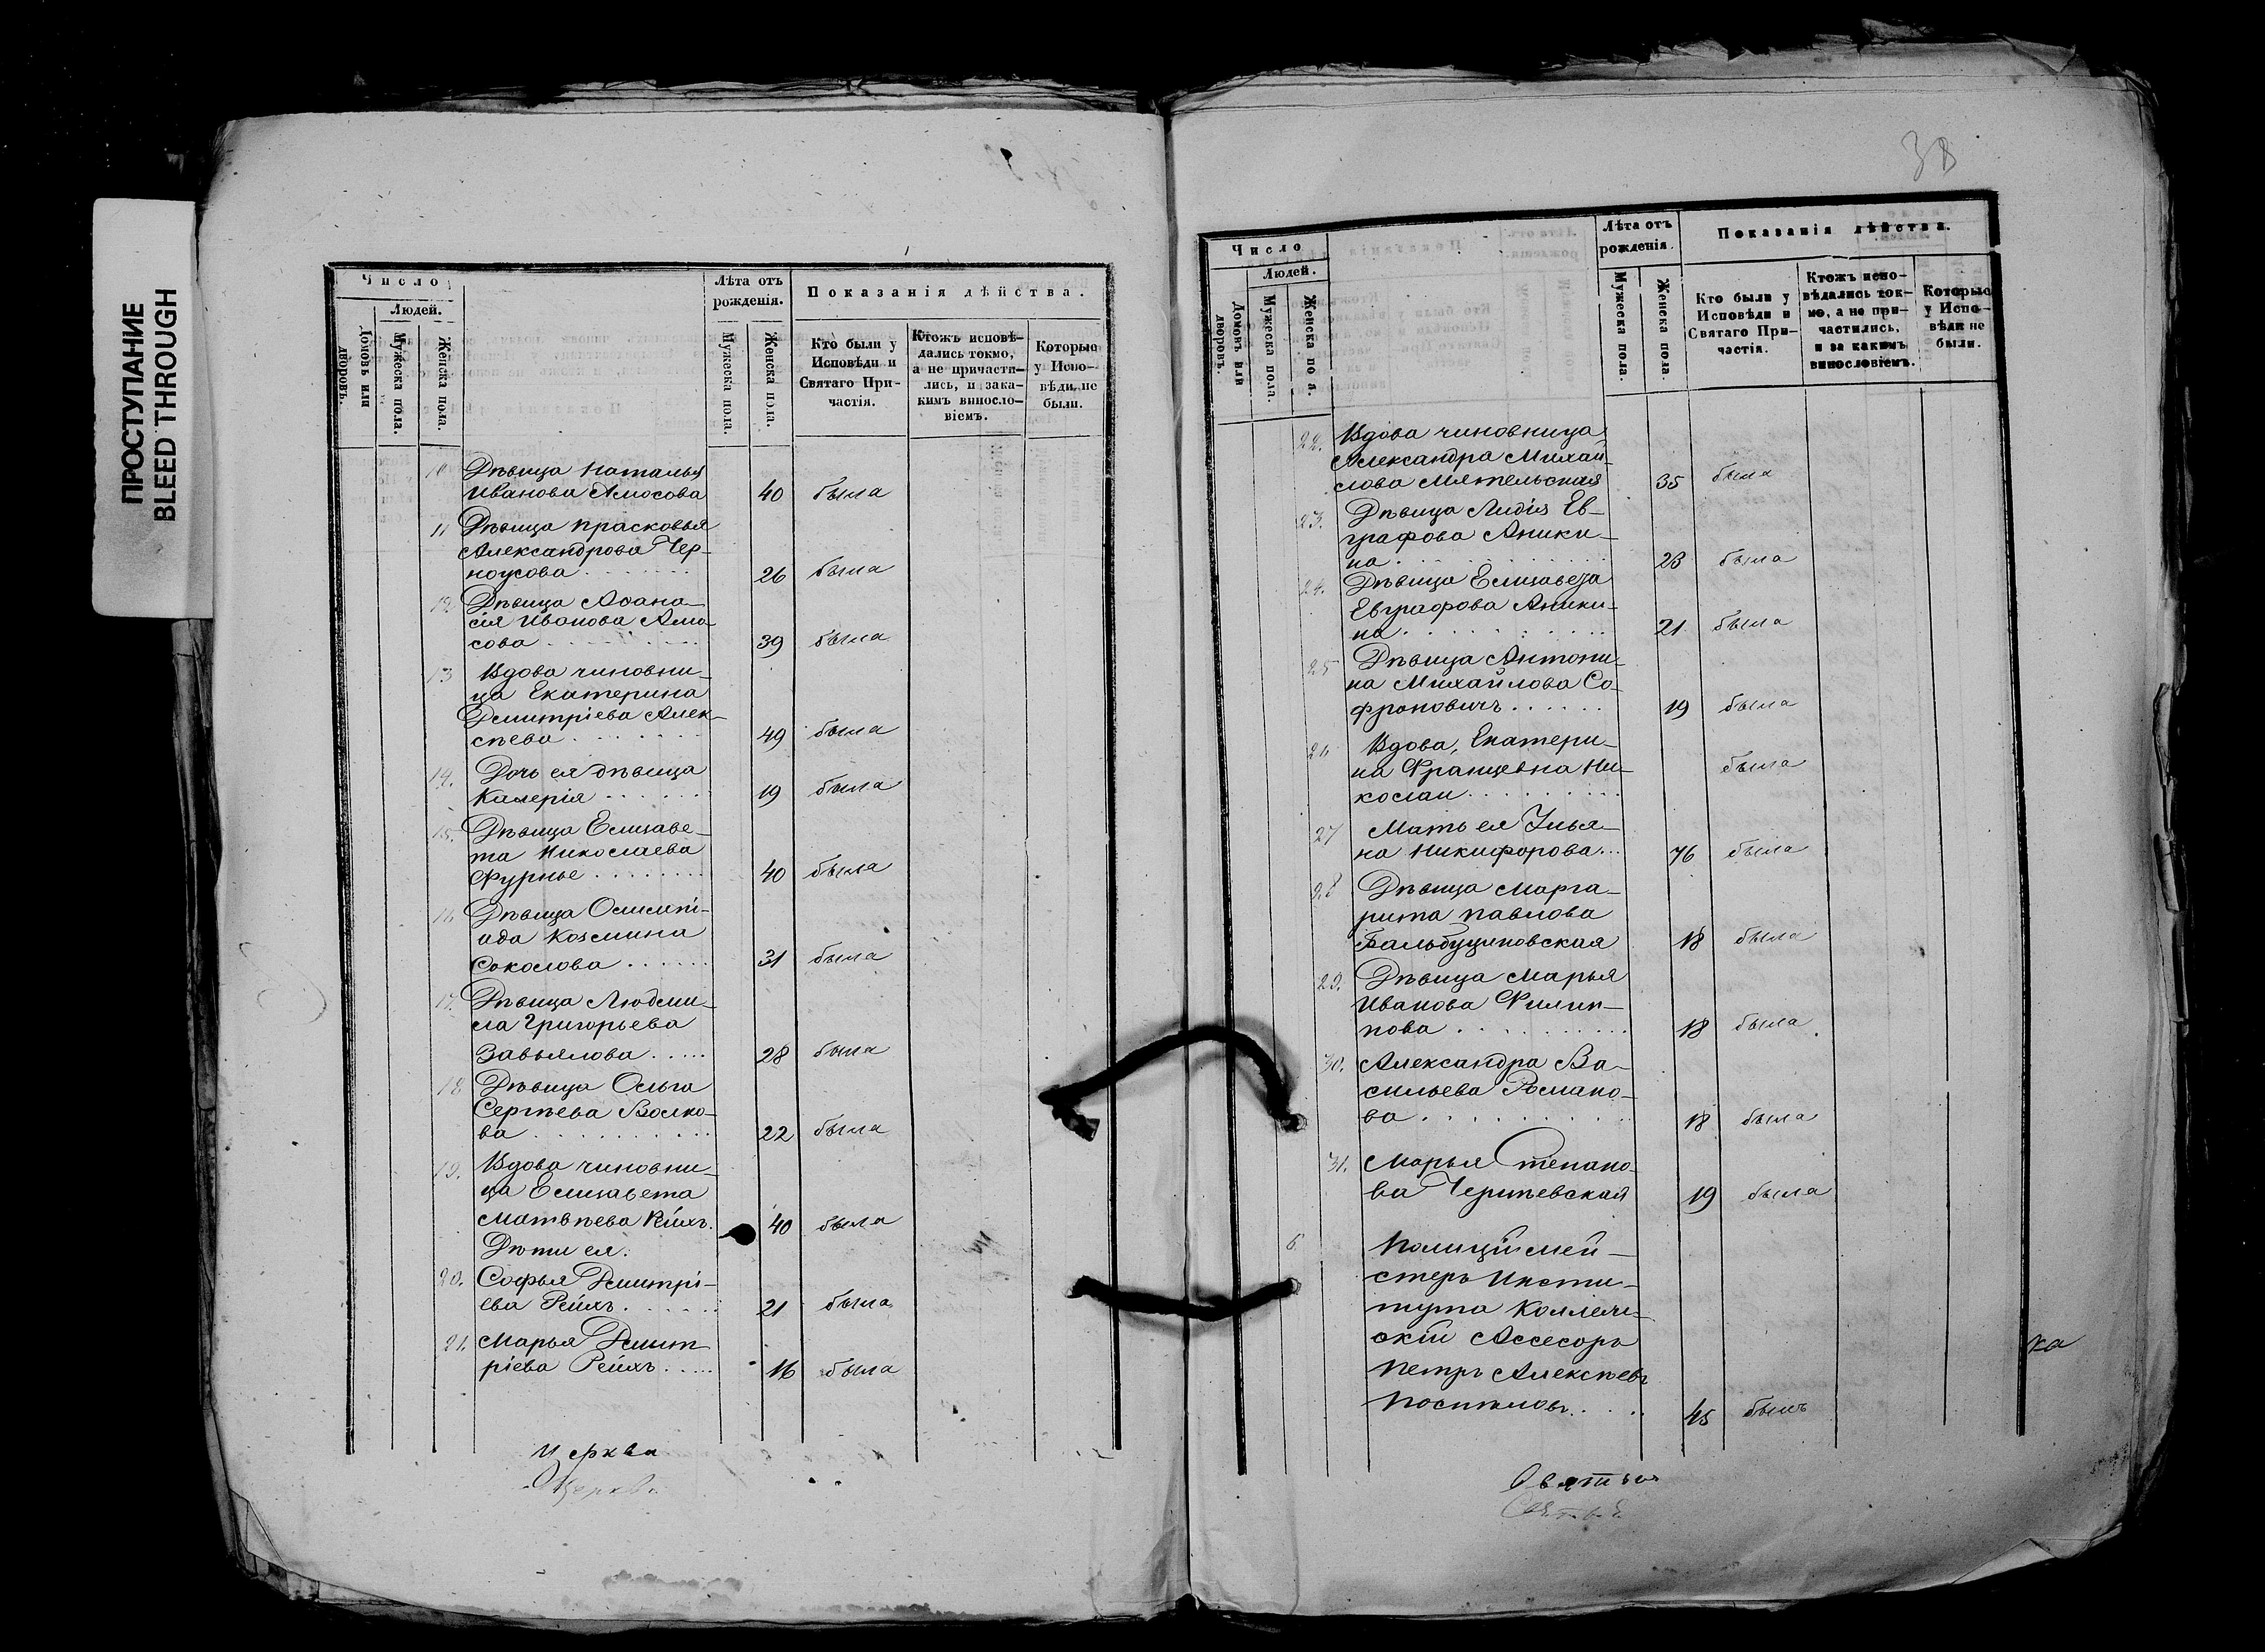 ПРОСТУПАНИЕ
BLEED THROUGH
Число
Людей.
Домовъ или дворовъ.
Мужеска пола.
Женска пола.
Лѣта отъ рожденія.
Мужеска пола.
Женска пола.
Показанія дѣйства.
Кто были у Исповѣди и Святаго При-частія.
Ктожъ исповѣ-дались токмо, а не причасти-лись, и зака-кимъ винослo-віемъ.
Которые у Испо-вѣди не были.
10 Дѣвица Наталья
Иванова Амосова 40 была
11 Дѣвица Прасковья
Александрова Чер-
ноусова 26 была
12 Дѣвица Аѳана-
сія Иванова Амо-
сова 39 была
13 Вдова чиновни-
ца Екатерина
Дмитріева Алек-
сѣева 49 была
14. Дочь ея дѣвица
Калерія 19 была
15. Дѣвица Елизаве-
та Николаева
Фурнье 40 была
16. Дѣвица Олимпі-
ада Козмина
Соколова 31 была
17. Дѣвица Людми-
ла Григорьева
Завьялова 28 была
18 Дѣвица Ольга
Сергѣева Волко-
ва 22 была
19. Вдова чиновни-
ца Елизавета
Матвѣева Рейхъ. 40 была
Дѣти ея:
20. Софья Дмитрі-
ева Рейхъ 21 была
21. Марья Дмит-
ріева Рейхъ 16 была
Церкви
Церкви
38
Число
Людей.
Домовъ или дворовъ.
Мужеска пола.
Женска пола.
Лѣта отъ рожденія.
Мужеска пола.
Женска пола.
Показанія дѣйства.
Кто были у Исповѣди и Святаго При-частія.
Ктожъ испо-вѣдались ток-мо, а не при-частились, и за какимъ винословіемъ.
Которые у Испо-вѣди не были.
22. Вдова чиновница
Александра Михай-
лова 35 была
23. Дѣвица Лидія Ев-
графова Аники-
на 23 была
24. Дѣвица Елизавета
Евграфова Аники-
на 21 была
25 Дѣвица Антони-
на Михайлова Со-
фроновичъ 19 была
26 Вдова, Екатери-
на Францевна Ни-
колаи была
27 Мать ея Улья-
на Никифорова 76 была
28 Дѣвица Марга-
рита Павлова
18 была
29. Дѣвица Марья
Иванова Филип-
пова 18 была
30. Александра Ва-
сильева Романо-
ва 18 была
31. Марья Степано-
ва 19 была
6 Полицiймей-
стеръ Инсти-
тута Коллеж-
скій Ассесоръ
Петръ Алексѣевъ
Поспѣловъ 45 былъ
ка
Святыя